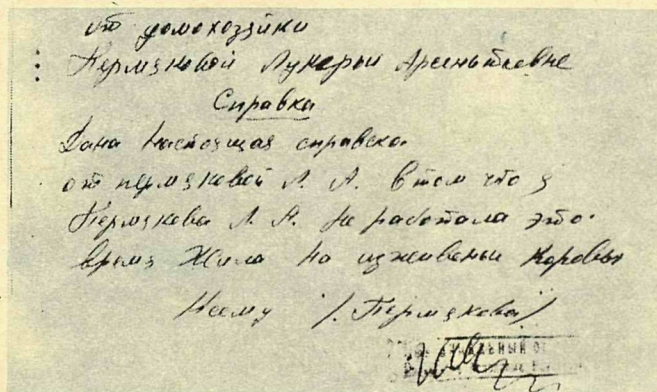 от домохозяйки
Пермяковой Лукерьи Арсентьевне
Справка
Дана настоящая справка
от пермяковой Л. А. В том что я
Пермякова Л. А. не работала это
время Жила на иживеньи коровы
/. Пермякова/